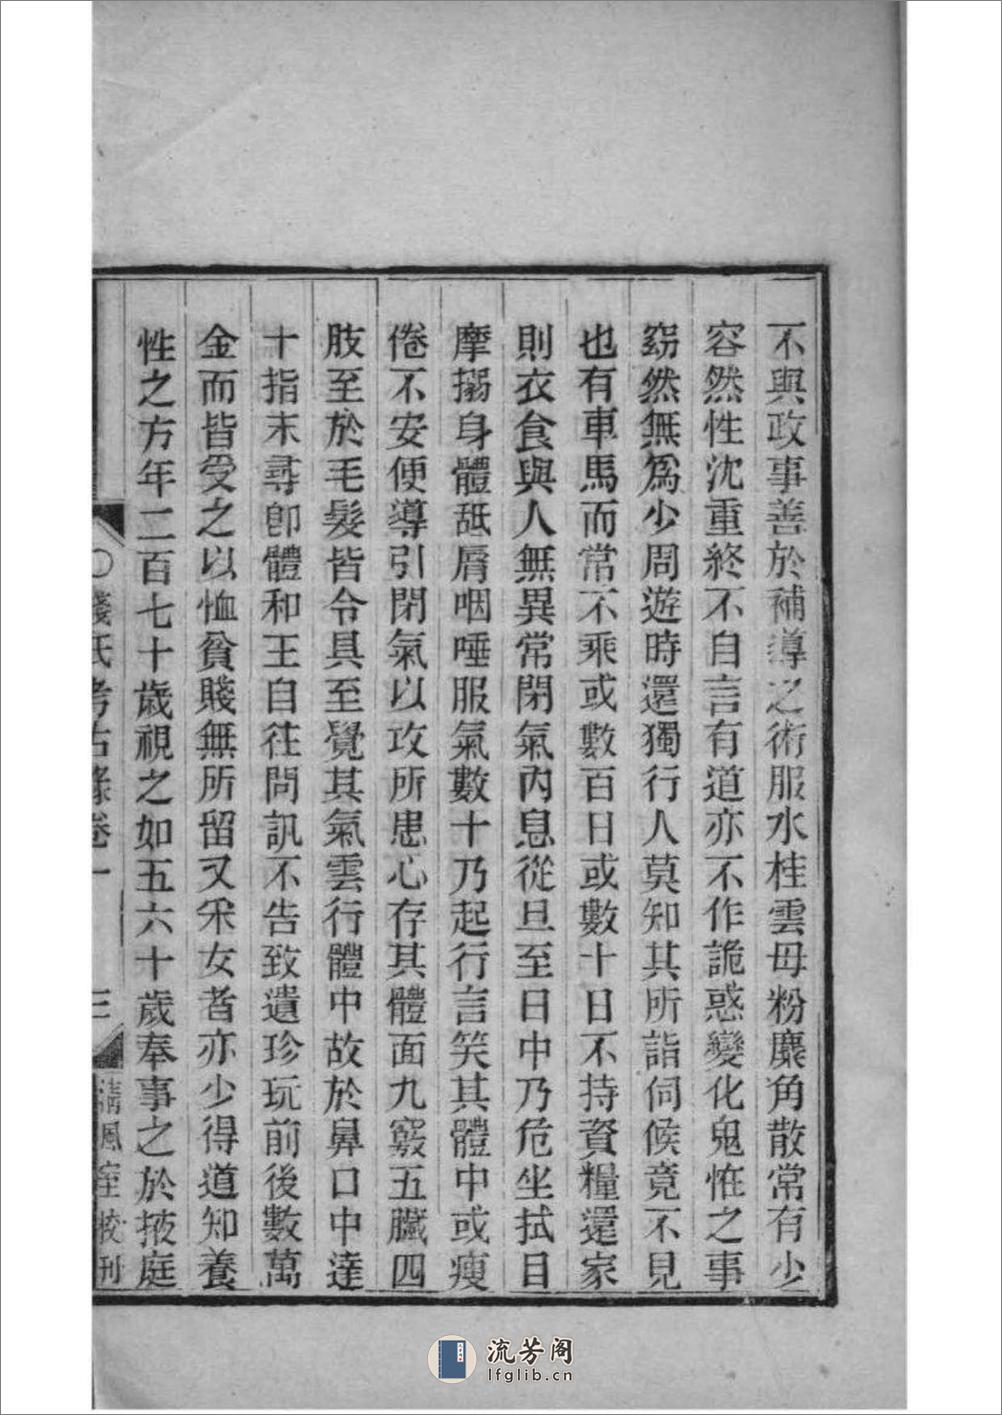 不與政事善於補導之術服水桂雲母粉麋角散常有少
容然性沈重終不自言有道亦不作詭惑變化鬼恠之事
窈然無爲少周遊時還獨行人莫知其所詣伺候竟不見
也有車馬而常不乘或數百日或數十日不持資糧還家
則衣食與人無異常閉氣內息從旦至日中乃危坐拭目
摩搦身體舐脣咽唾服氣數十乃起行言笑其體中或瘦
倦不安便導引閉氣以攻所患心存其體面九竅五臟四
肢至於毛髮皆令具至覺其氣雲行體中故於鼻口中達
十指末尋卽體和王自往問訊不告致遺珍玩前後數萬
金而皆受之以恤貧賤無所留又采女者亦少得道知養
性之方年二百七十歲視之如五六十歲奉事之於掖庭
錢氏考古錄卷一 三 清風室校刊
流芳阁
lfglib.cn